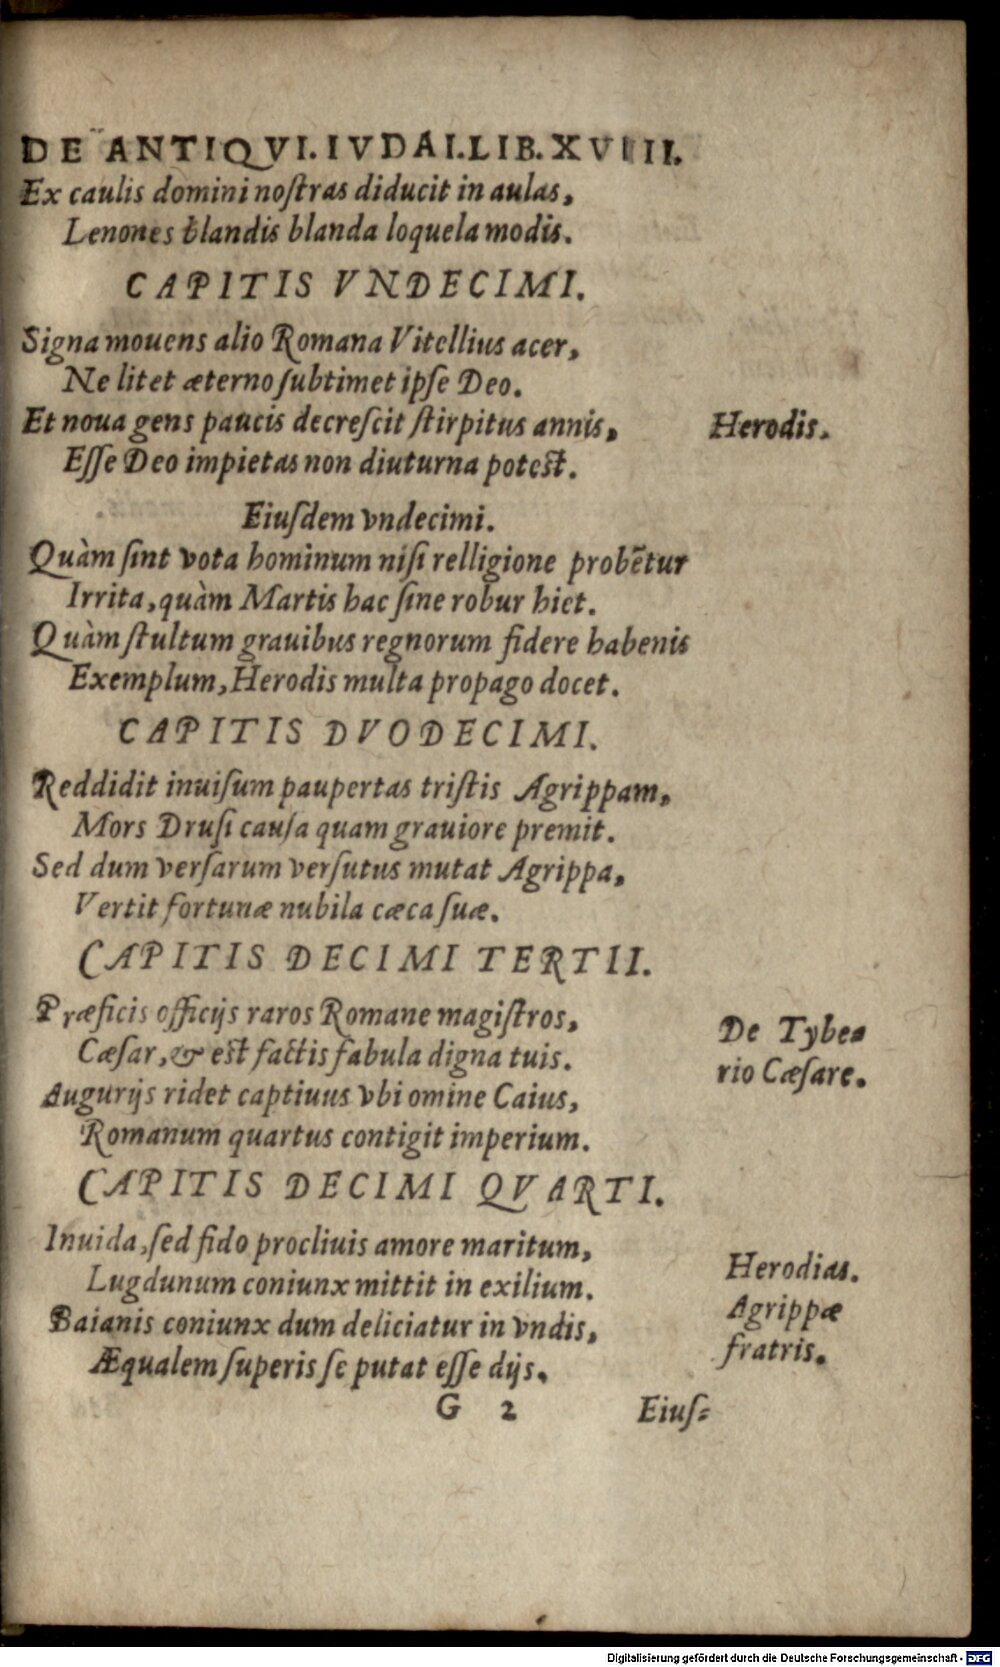 DE ANTIQVI. IVDAI. LIB. XVIII.
Ex caulis domini noſtras diducit in aulas,
Lenones blandis blanda loquela modis.
CAPITIS VNDECIMI.
Signa mouens alio Romana Vitellius acer,
Ne litet æterno ſubtimet ipſe Deo.
Et noua gens paucis decreſcit ſtirpitus annis,
Herodis.
Eſſe Deo impietas non diuturna poteſt.
Eiuſdem vndecimi.
Quàm ſint vota hominum niſi relligione probẽtur
Irrita, quàm Martis hac ſine robur hiet.
Quàm ſtultum grauibus regnorum fidere habenis
Exemplum, Herodis multa propago docet.
CAPITIS DVODECIMI.
Reddidit inuiſum paupertas triſtis Agrippam,
Mors Druſi cauſa quam grauiore premit.
Sed dum verſarum verſutus mutat Agrippa,
Vertit fortunæ nubila cæca ſuæ.
CAPITIS DECIMI TERTII.
Præficis officijs raros Romane magiſtros,
De Tybe=
Cæſar, & eſt factis fabula digna tuis.
rio Cæſare.
Augurijs ridet captiuus vbi omine Caius,
Romanum quartus contigit imperium.
CAPITIS DECIMI QVARTI.
Inuida, ſed fido procliuis amore maritum,
Herodias.
Lugdunum coniunx mittit in exilium.
Agrippæ
Baianis coniunx dum deliciatur in vndis,
fratris.
Æqualem ſuperis ſe putat eſſe dijs.
G 2
Eiuſ=
Digitalisierung gefördert durch die Deutsche Forschungsgemeinschaft - DFG